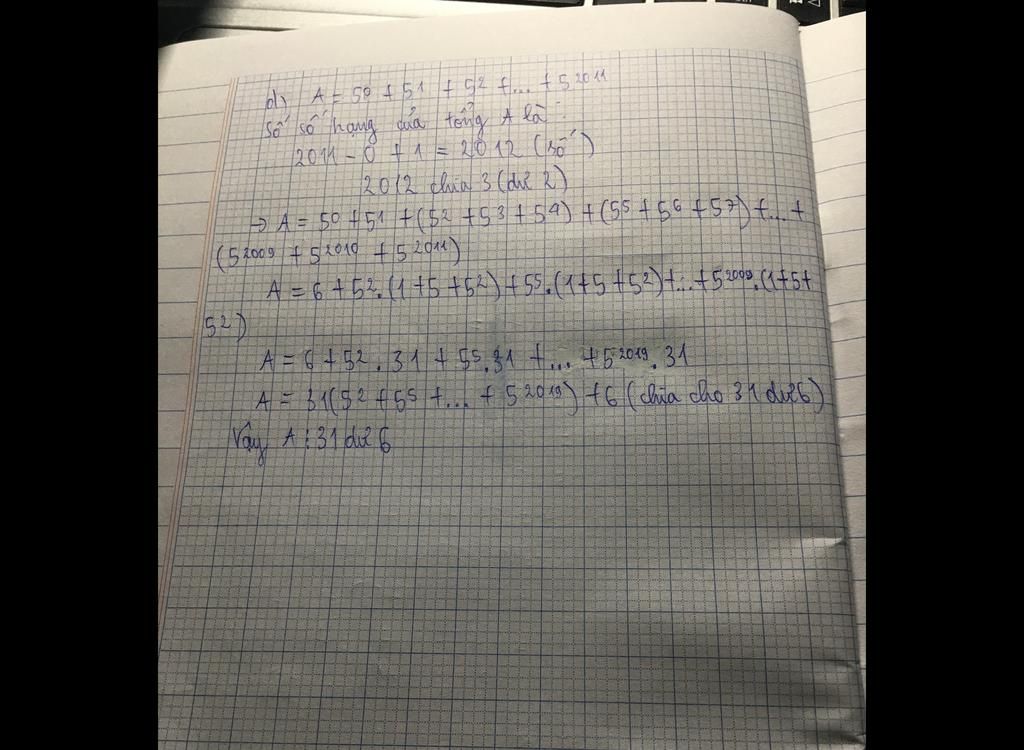 d) A = 5⁰ + 5¹ + 5² + ... + 5²⁰¹¹
Số số hạng của tổng A là :
2011 - 0 + 1 = 2012 (số)
2012 chia 3 (dư 2)
→ A = 5⁰ + 5¹ + (5² + 5³ + 5⁴) + (5⁵ + 5⁶ + 5⁷) + ... +
(5²⁰⁰⁹ + 5²⁰¹⁰ + 5²⁰¹¹)
A = 6 + 5².(1 + 5 + 5²) + 5⁵.(1 + 5 + 5²) + ... + 5²⁰⁰⁹.(1 + 5 +
5²)
A = 6 + 5² . 31 + 5⁵.31 + ... + 5²⁰¹⁹ . 31
A = 31(5² + 5⁵ + ... + 5²⁰¹⁹) + 6 (chia cho 31 dư 6)
Vậy A : 31 dư 6